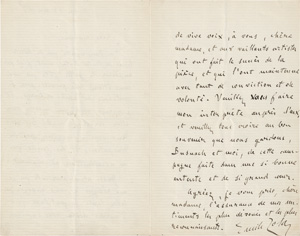 de vive voix, à vous, chère
madame, et aux vaillants artistes
qui ont fait le succès de la
pièce, et qui l'ont maintenue
avec tant de conviction et de
volonté. Veuillez vous faire
mon interprète auprès d'eux
et veuillez tous croire au bon
souvenir que nous gardons,
Busnach et moi, de cette cam-
pagne faite dans une si bonne
entente et de si grand cœur.
Agréez, je vous prie, chère
madame, l'assurance de mes sen-
timents les plus dévoués et les plus
reconnaissants.
Émile Zola